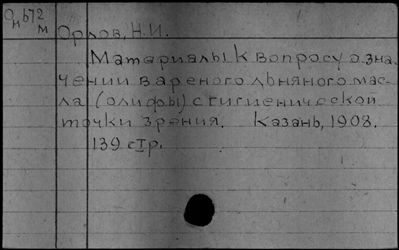 Он672
м
Орлов, Н.И.
Материалы к вопросу о зна-
чении вареного льняного мас-
ла (олифы) с гигиенической
точки зрения. Казань, 1908.
139 стр.